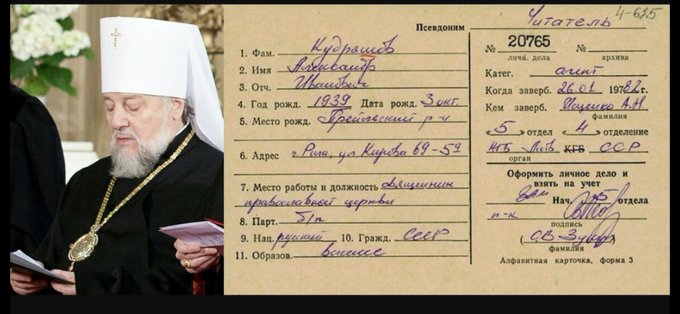 Псевдоним Читатель 4-625
1. Фам. Кудряшов
2. Имя Александр
3. Отч. Иванович
4. Год рожд. 1939 Дата рожд. 3 окт.
5. Место рожд. Прейльский р-н
6. Адрес г. Рига, ул Кирова 69-59
7. Место работы и должность священник
православной церкви
8. Парт. б/п
9. Нац русский 10. Гражд. СССР
11. Образов. высшее
№ 20765 №
личн. дела архива
Катег. агент
Когда заверб. 26.01 1982 г.
Кем заверб. Ищенко А.Н
фамилия
5 отдел 4 отделение
КГБ Латв КГБ ССР
орган
Оформить личное дело и
взять на учет
Зам Нач. 5 отдела
п-к
подпись
фамилия
Алфавитная карточка, форма 3